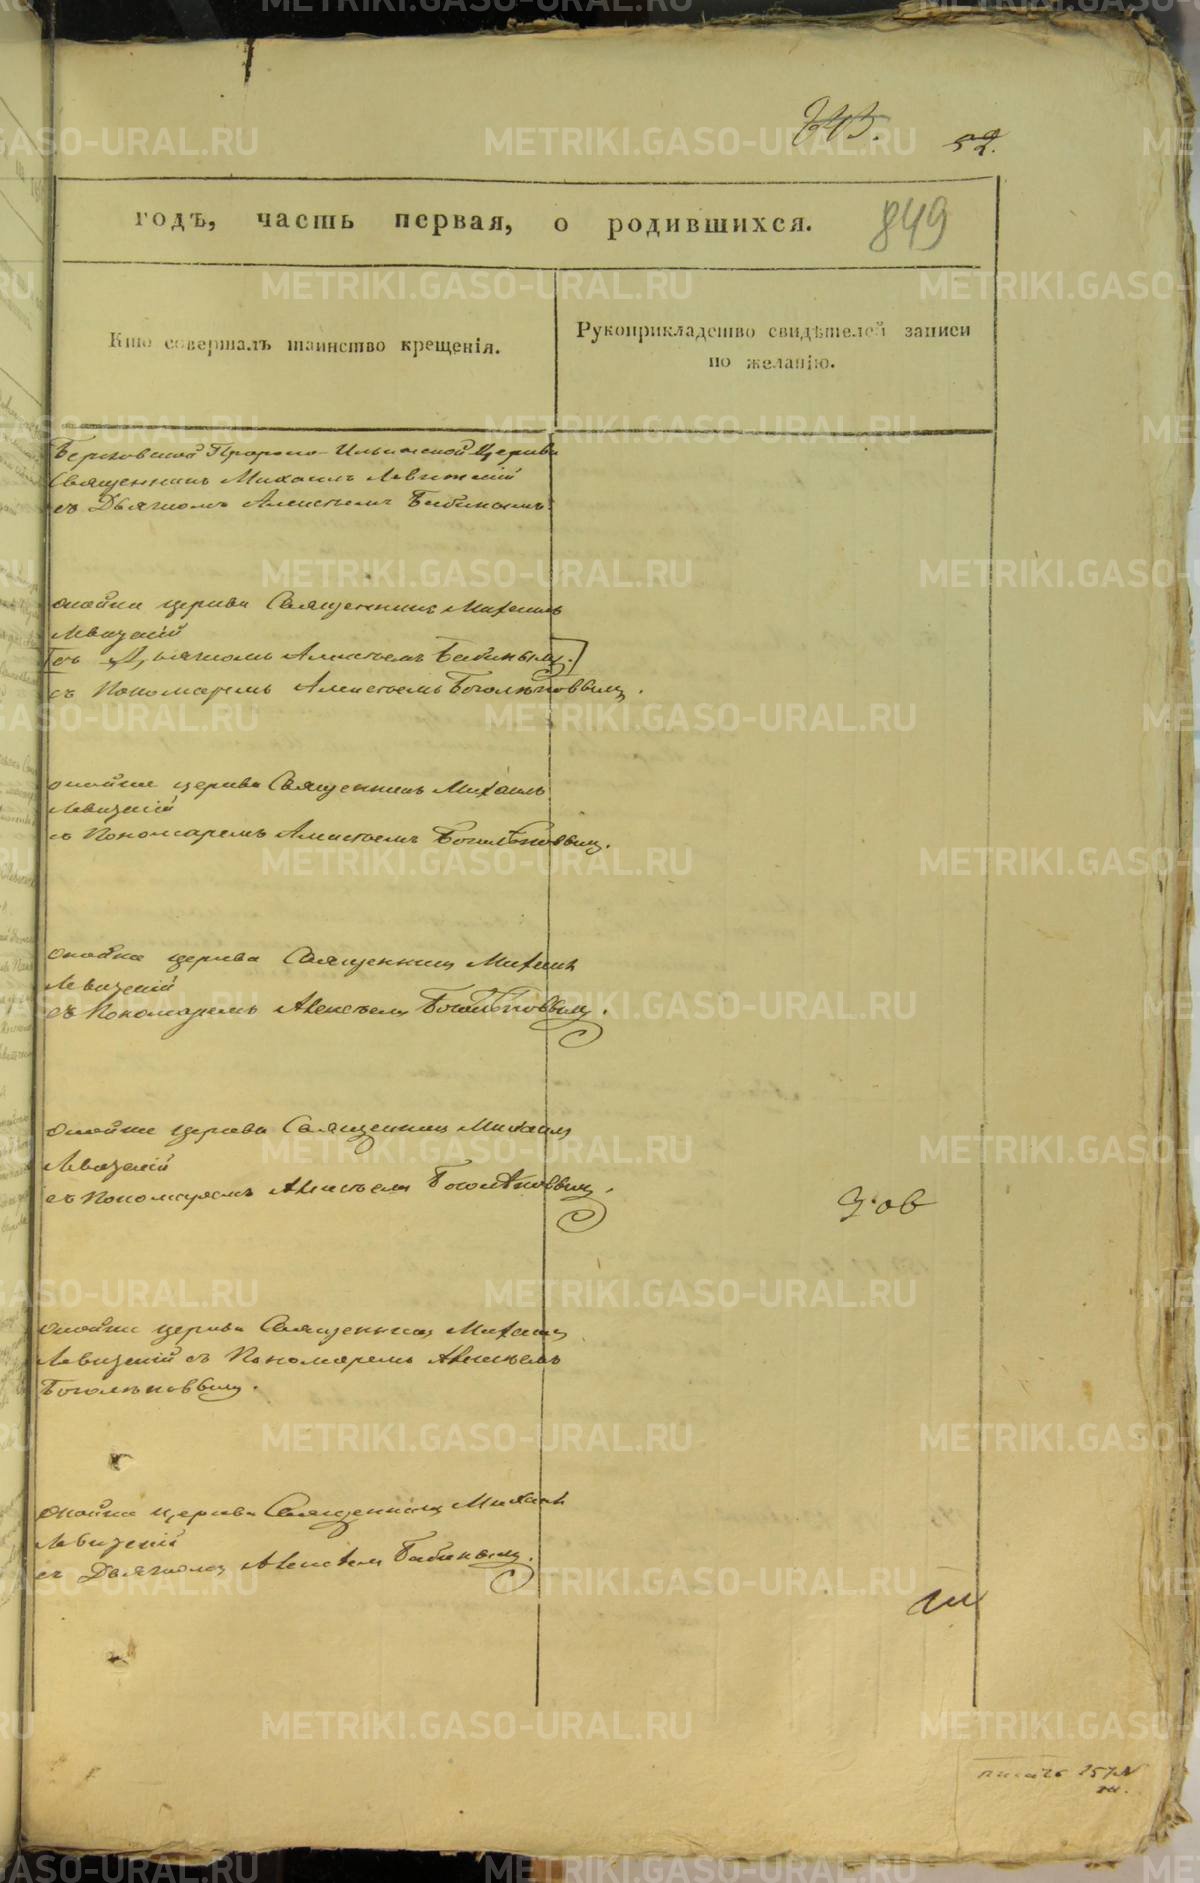 52.
годъ, часть первая, о родившихся.
849
Кто совершалъ таинство крещенія.
Рукоприкладство свидѣтелей записи
по желанію.
Пророко-Ильинской Церкви
Священникъ Михаилъ Левицкій
съ Дьячкомъ Алексѣемъ Бабинымъ
оной же церкви Священникъ Михаилъ
Левицкій
съ Дьячкомъ Алексѣемъ Бабинымъ.
съ Пономаремъ Алексѣемъ Боголѣповымъ.
оной же церкви Священникъ Михаилъ
Левицкій
съ Пономаремъ Алексѣемъ Боголѣповымъ.
оной же церкви Священникъ Михаилъ
Левицкій
съ Пономаремъ Алексѣемъ Боголѣповымъ.
оной же церкви Священникъ Михаилъ
Левицкій
съ Пономаремъ Алексѣемъ Боголѣповымъ.
оной же церкви Священникъ Михаилъ
Левицкій съ Пономаремъ Алексѣемъ
Боголѣповымъ.
оной же церкви Священникъ Михаилъ
Левицкій
съ Дьячкомъ Алексѣемъ Бабинымъ.
METRIKI.GASO-URAL.RU